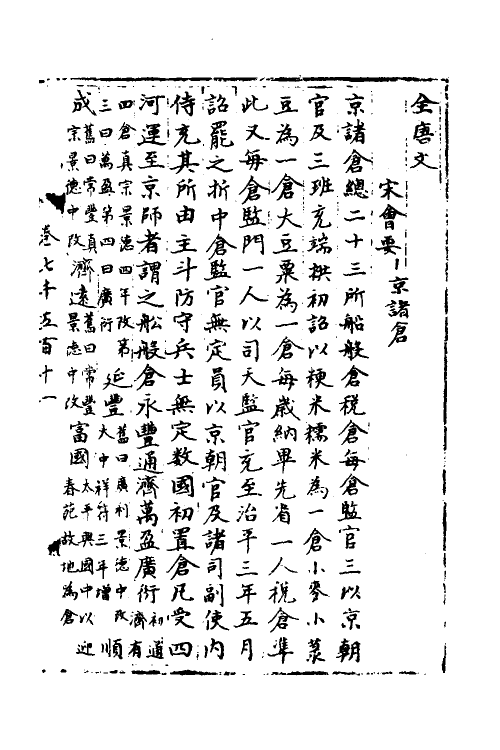 全唐文
宋會要 京諸倉
京諸倉總二十三所船般倉稅倉每倉監官三以京朝
官及三班充端拱初詔以粳米糯米為一倉小麥小菉
豆為一倉大豆粟為一倉每歲納畢先省一人稅倉準
此又每倉監門一人以司天監官充至治平三年五月
詔罷之折中倉監官無定員以京朝官及諸司副使內
侍充其所由主斗防守兵士無定数國初置倉凡受四
河運至京師者謂之船般倉永豐通濟萬盈廣衍初通濟有
四倉真宗景德四年改第
三曰萬盈第四曰廣衍延豐舊曰廣利景德中改
大中祥符三年增順
成舊曰常豐真
宗景德中改濟遠舊曰常豐
景德中改富國太平興國中以
春苑故地為倉迎
卷七千五百十一